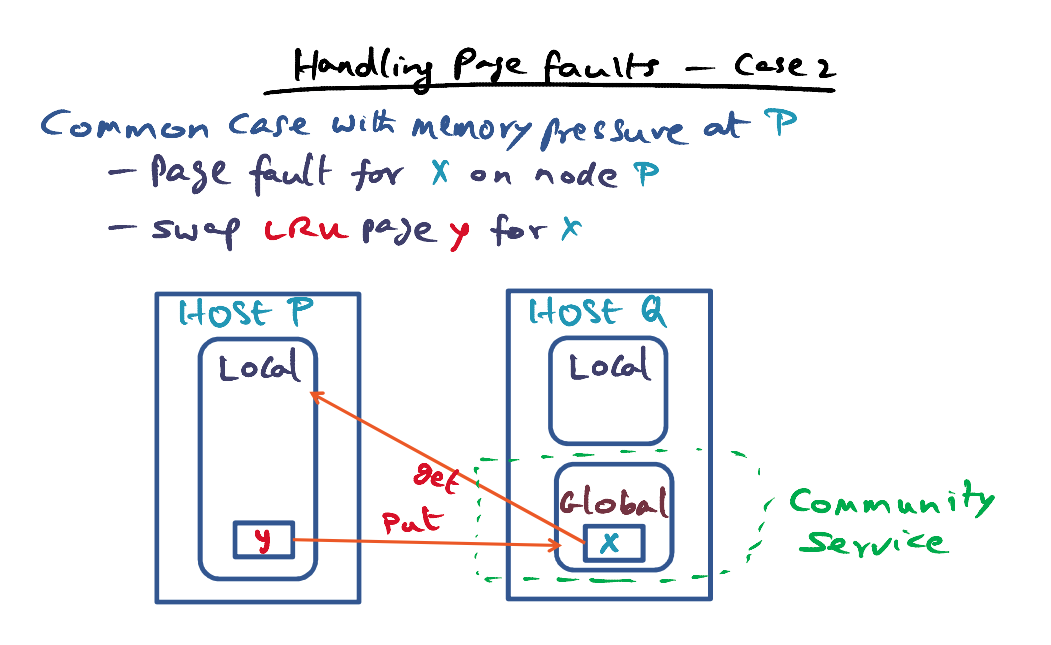 Handling Page faults - Case 2
Common case with memory pressure at P
- Page fault for X on node P
- swap LRU page y for X
HOST P
HOST Q
Local
Local
get
Global
Put
y
X
Community
Service